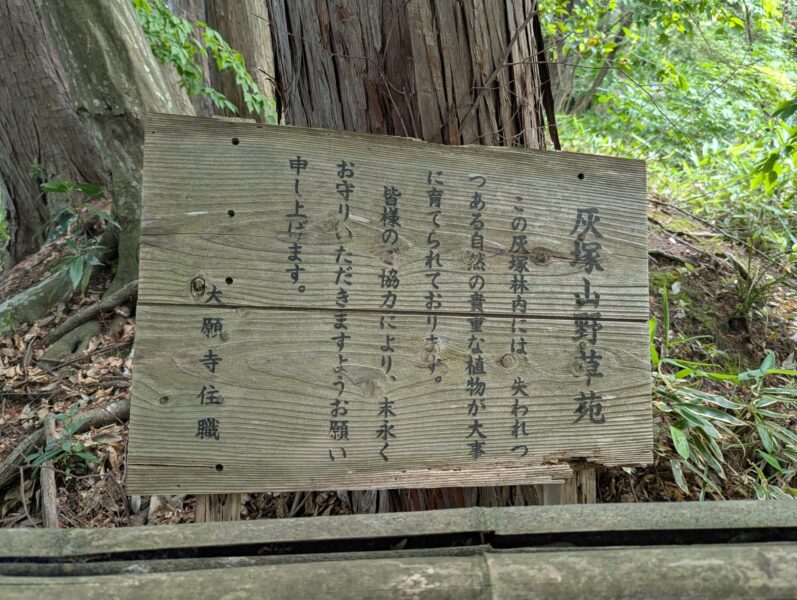 灰塚山野草苑
この灰塚林内には、失われつ
つある自然の貴重な植物が大事
に育てられております。
皆様のご協力により、末永く
お守りいただきますようお願い
申し上げます。
大願寺住職